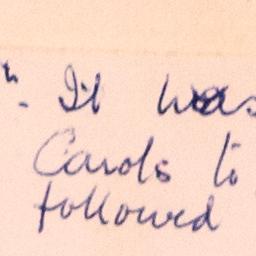 ". It was
Carols to
followed